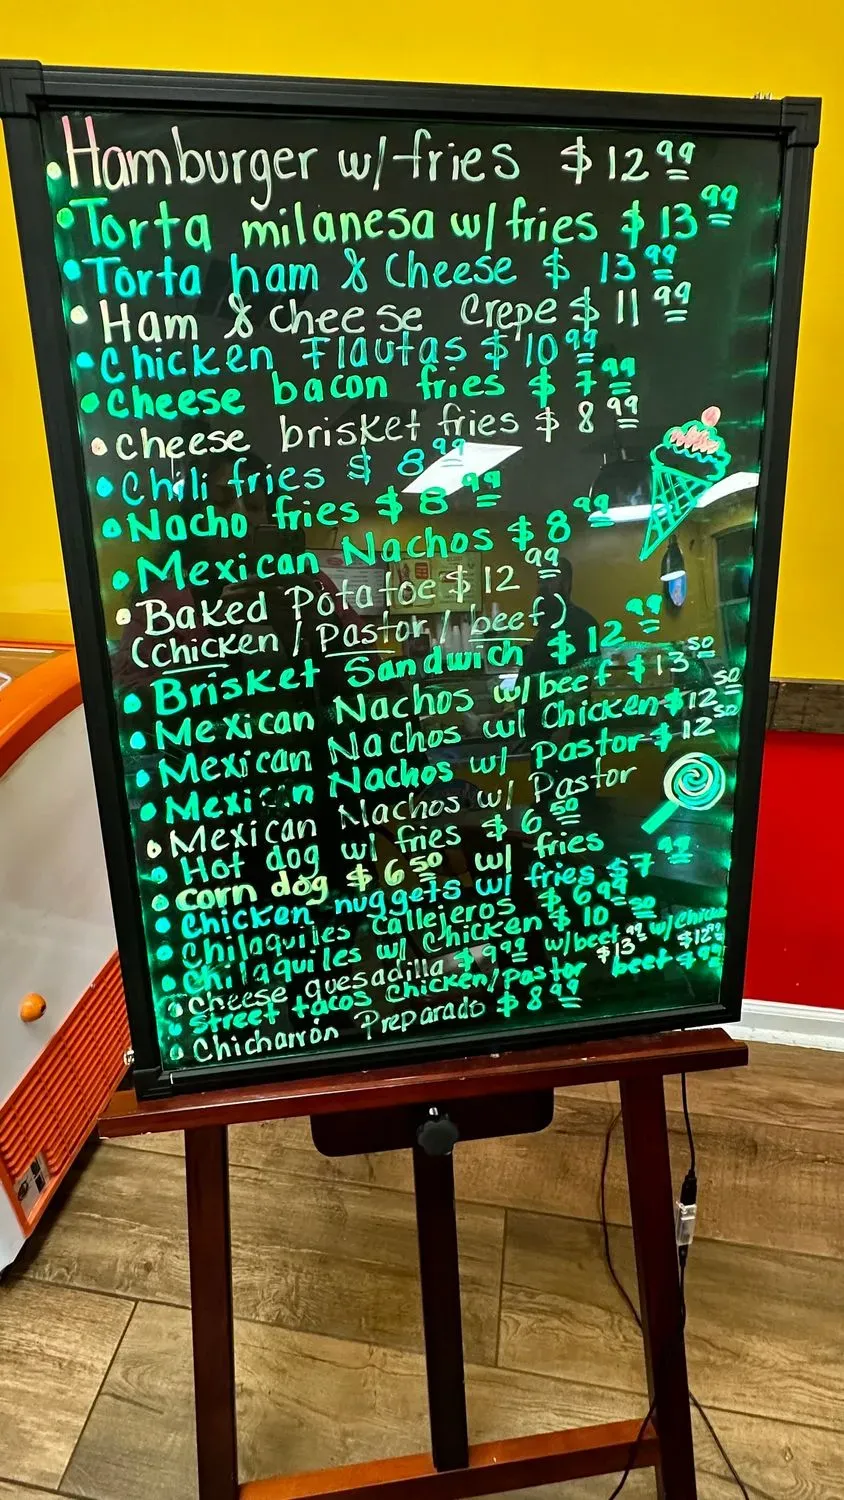 • Hamburger w/ fries $12 99
• Torta milanesa w/ fries $13 99
• Torta ham & Cheese $ 13 99
• Ham & cheese Crepe $ 11 99
• Chicken Flautas $ 10 99
• Cheese bacon fries $ 7 99
• cheese brisket fries $ 8 99
• Chili fries $ 8 99
• Nacho fries $ 8 99
• Mexican Nachos $ 8 99
• Baked Potatoe $ 12 99
(Chicken / Pastor / beef)
• Brisket Sandwich $ 12 99
• Mexican Nachos w/ beef $ 13 50
• Mexican Nachos w/ Chicken $12 50
• Mexican Nachos w/ Pastor $ 12 50
• Mexican Nachos w/ Pastor
• Hot dog w/ fries $ 6 50
• corn dog $ 6 50 w/ fries
• Chicken nuggets w/ fries $7 99
• Chilaquiles Callejeros $ 6 99
• Chilaquiles w/ Chicken $ 10 50
• Cheese quesadilla $ 9 99 w/ beef $13 99 w/ Chicken $12 99
• Street tacos Chicken/Pastor beef $ 7 99
• Chicharrón Preparado $ 8 99